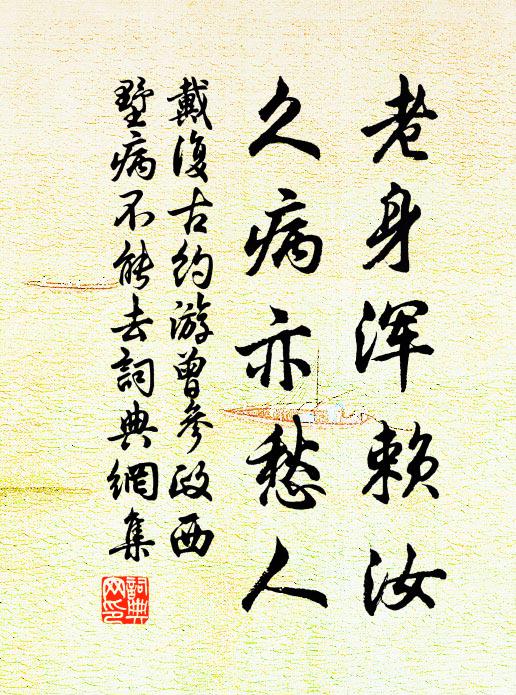 老身浑赖汝
久病亦愁人
戴復古約游曾参政西
墅病不能去詞典網集
詞典
网印